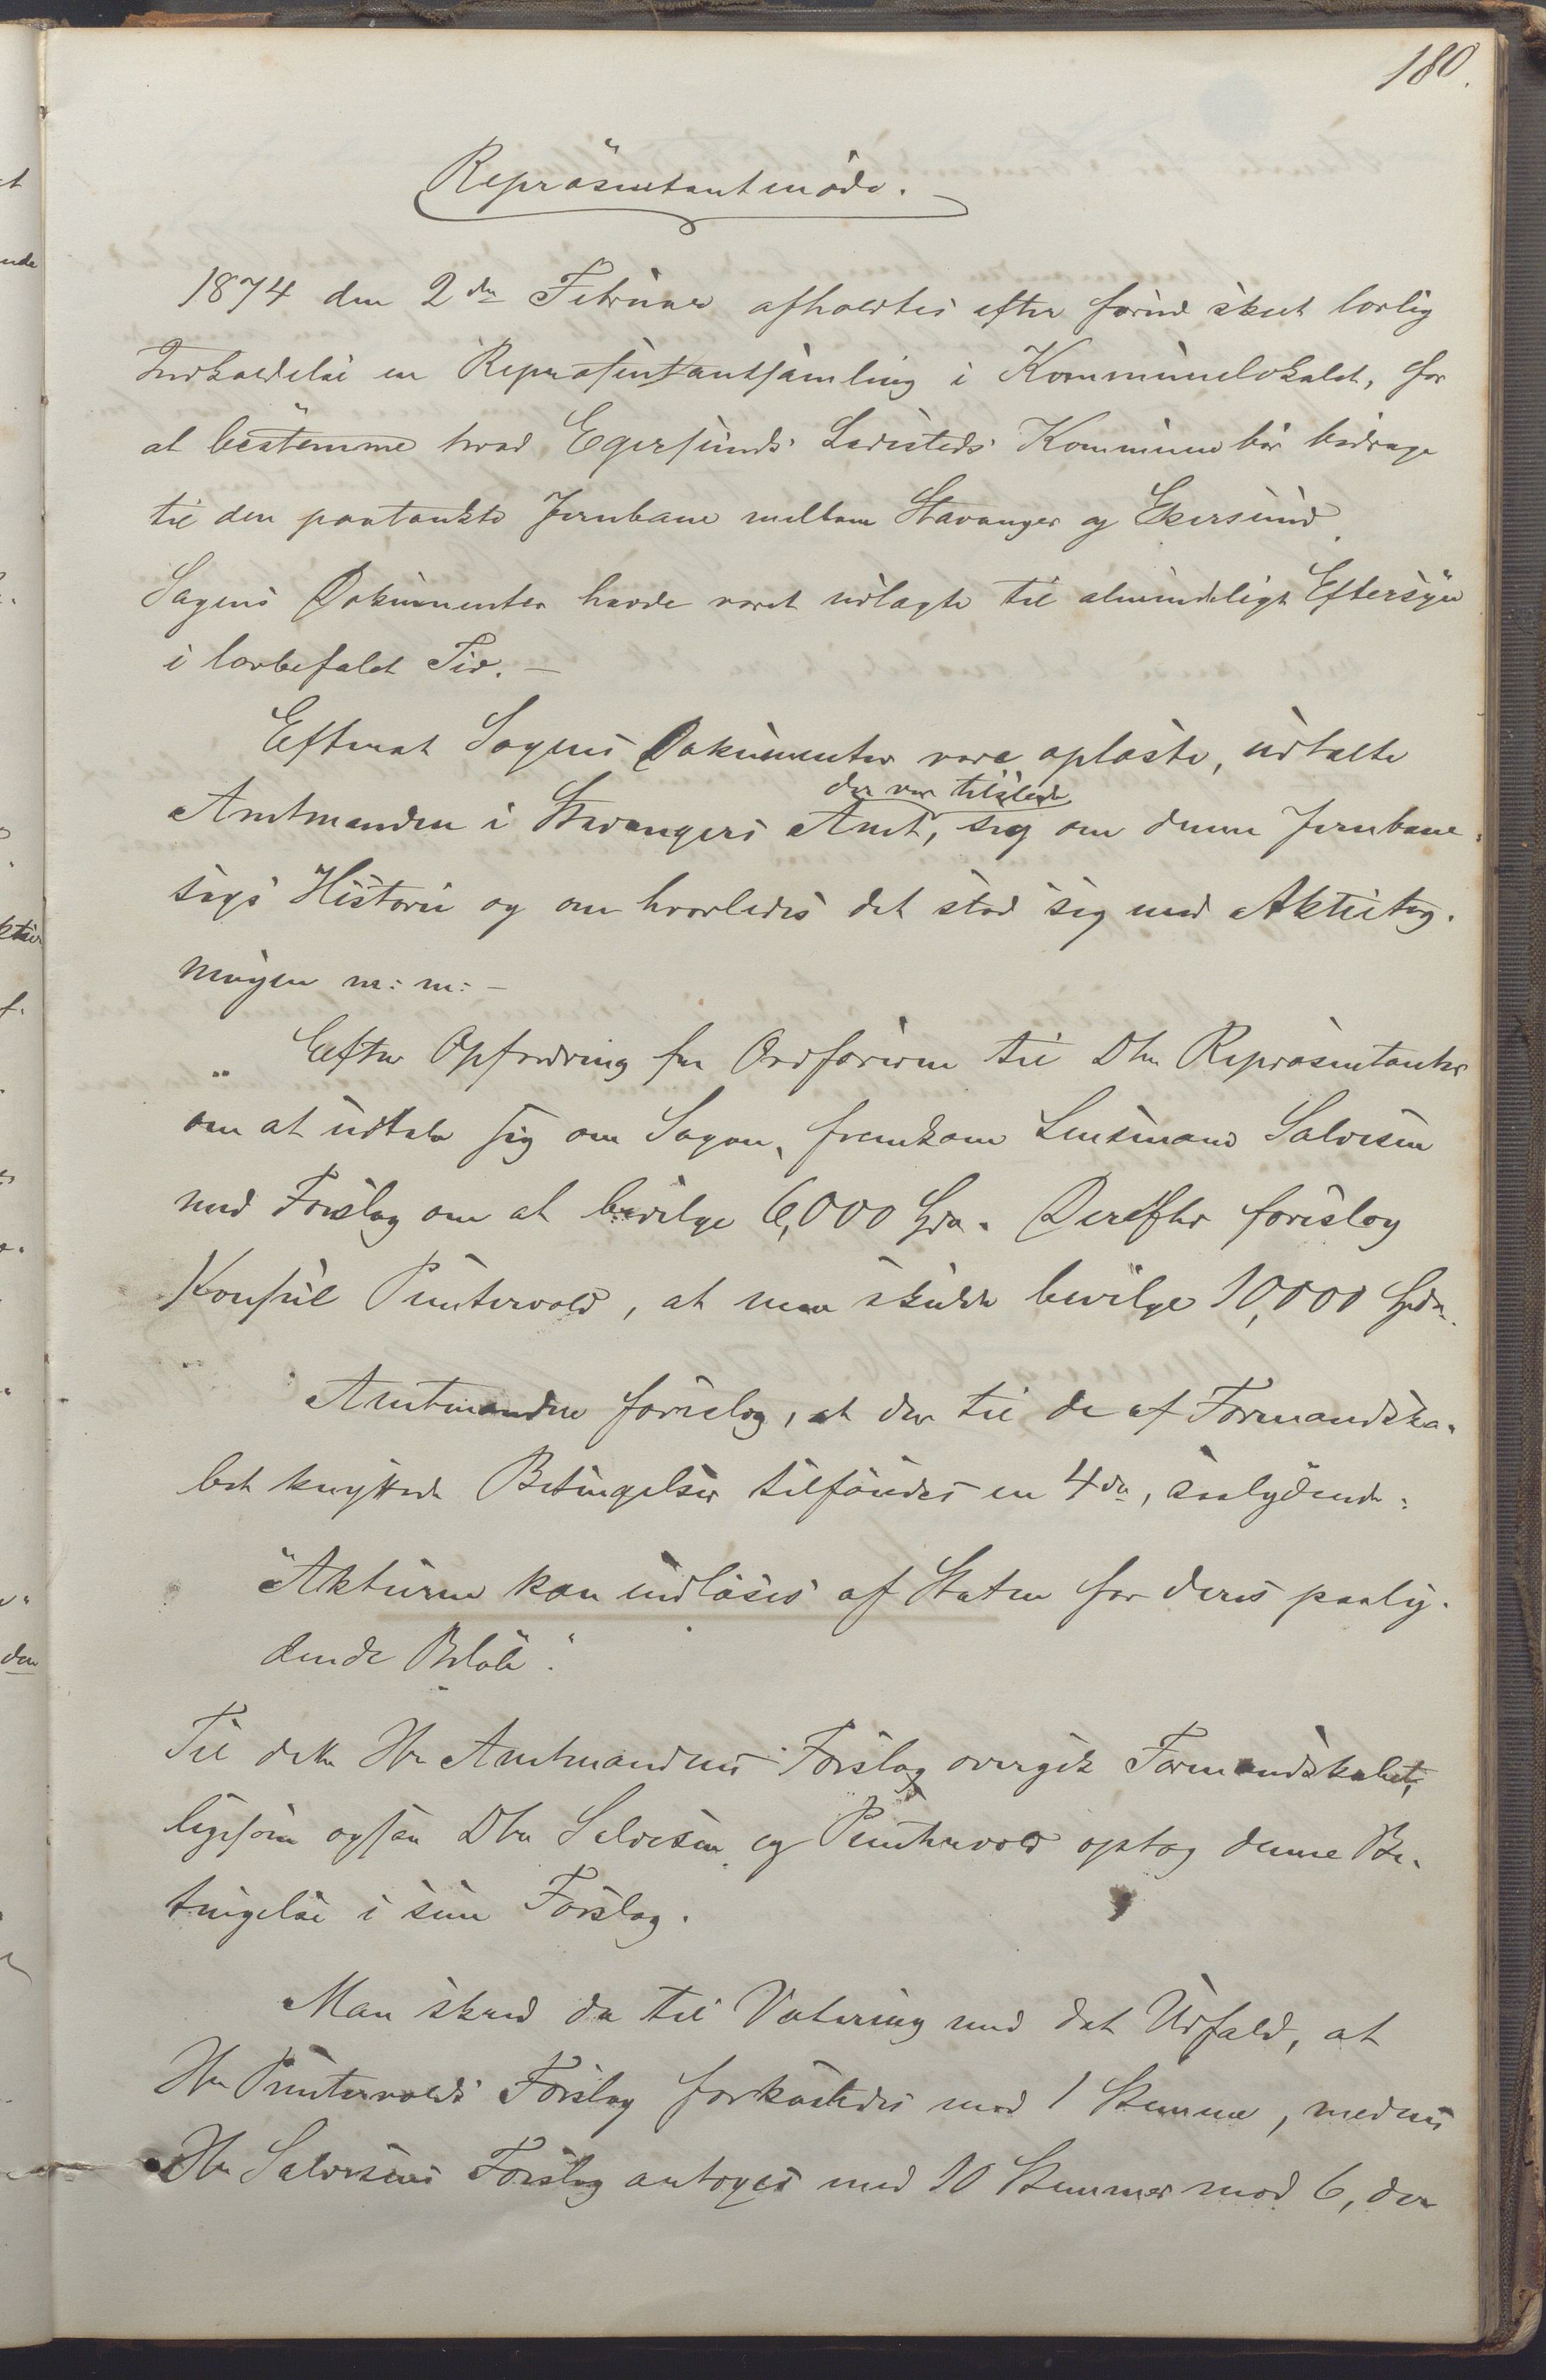 180.
Repräsentantmöde.
1874 den 2den Februar afholdtes efter forud skeet lovlig
Indkaldelse en Repräsentantsamling i Kommunelokalet, for
at bestemme hvad Egersunds Ladesteds Kommune bör bidrage
til den paatänkte Jernbane mellem Stavanger og Ekersund.
Sagens Dokumenter havde väret udlagte til almindeligt Eftersyn
i lovbefalet Tid. —
Efterat Sagens Dokumenter vare opläste, udtalte
der var tilstede
Amtmanden i Stavangers Amt, sig om denne Jernbane-
sags Historie og om hvorledes det stod sig med Aktieteg-
ningen m: m: —
" Efter Opfordring fra Ordföreren til Dhrr Repräsentanter
om at udtale sig om Sagen, fremkom Lensmand Salvesen
med Forslag om at bevilge 6,000 Spd. Derefter foreslog
Konsul Puntervold, at man skulde bevilge 10,000 Spd.
Amtmanden foreslog, at der til de af Formandska-
bet knyttede Betingelser tilföiedes en 4de, saalydende:
"Aktierne kan indlöses af Staten for deres paaly-
dende Belöb".
Til dette Hr Amtmandens Forslag overgik Formandskabet,
ligesom ogsaa Dhrr Salvesen og Puntervold optog denne Be-
tingelse i sine Forslag.
Man skred da til Votering med det Udfald, at
Hr Puntervolds Forslag forkastedes mod 1 Stemme, medens
Hr Salvesens Forslag antoges med 10 Stemmer mod 6, der